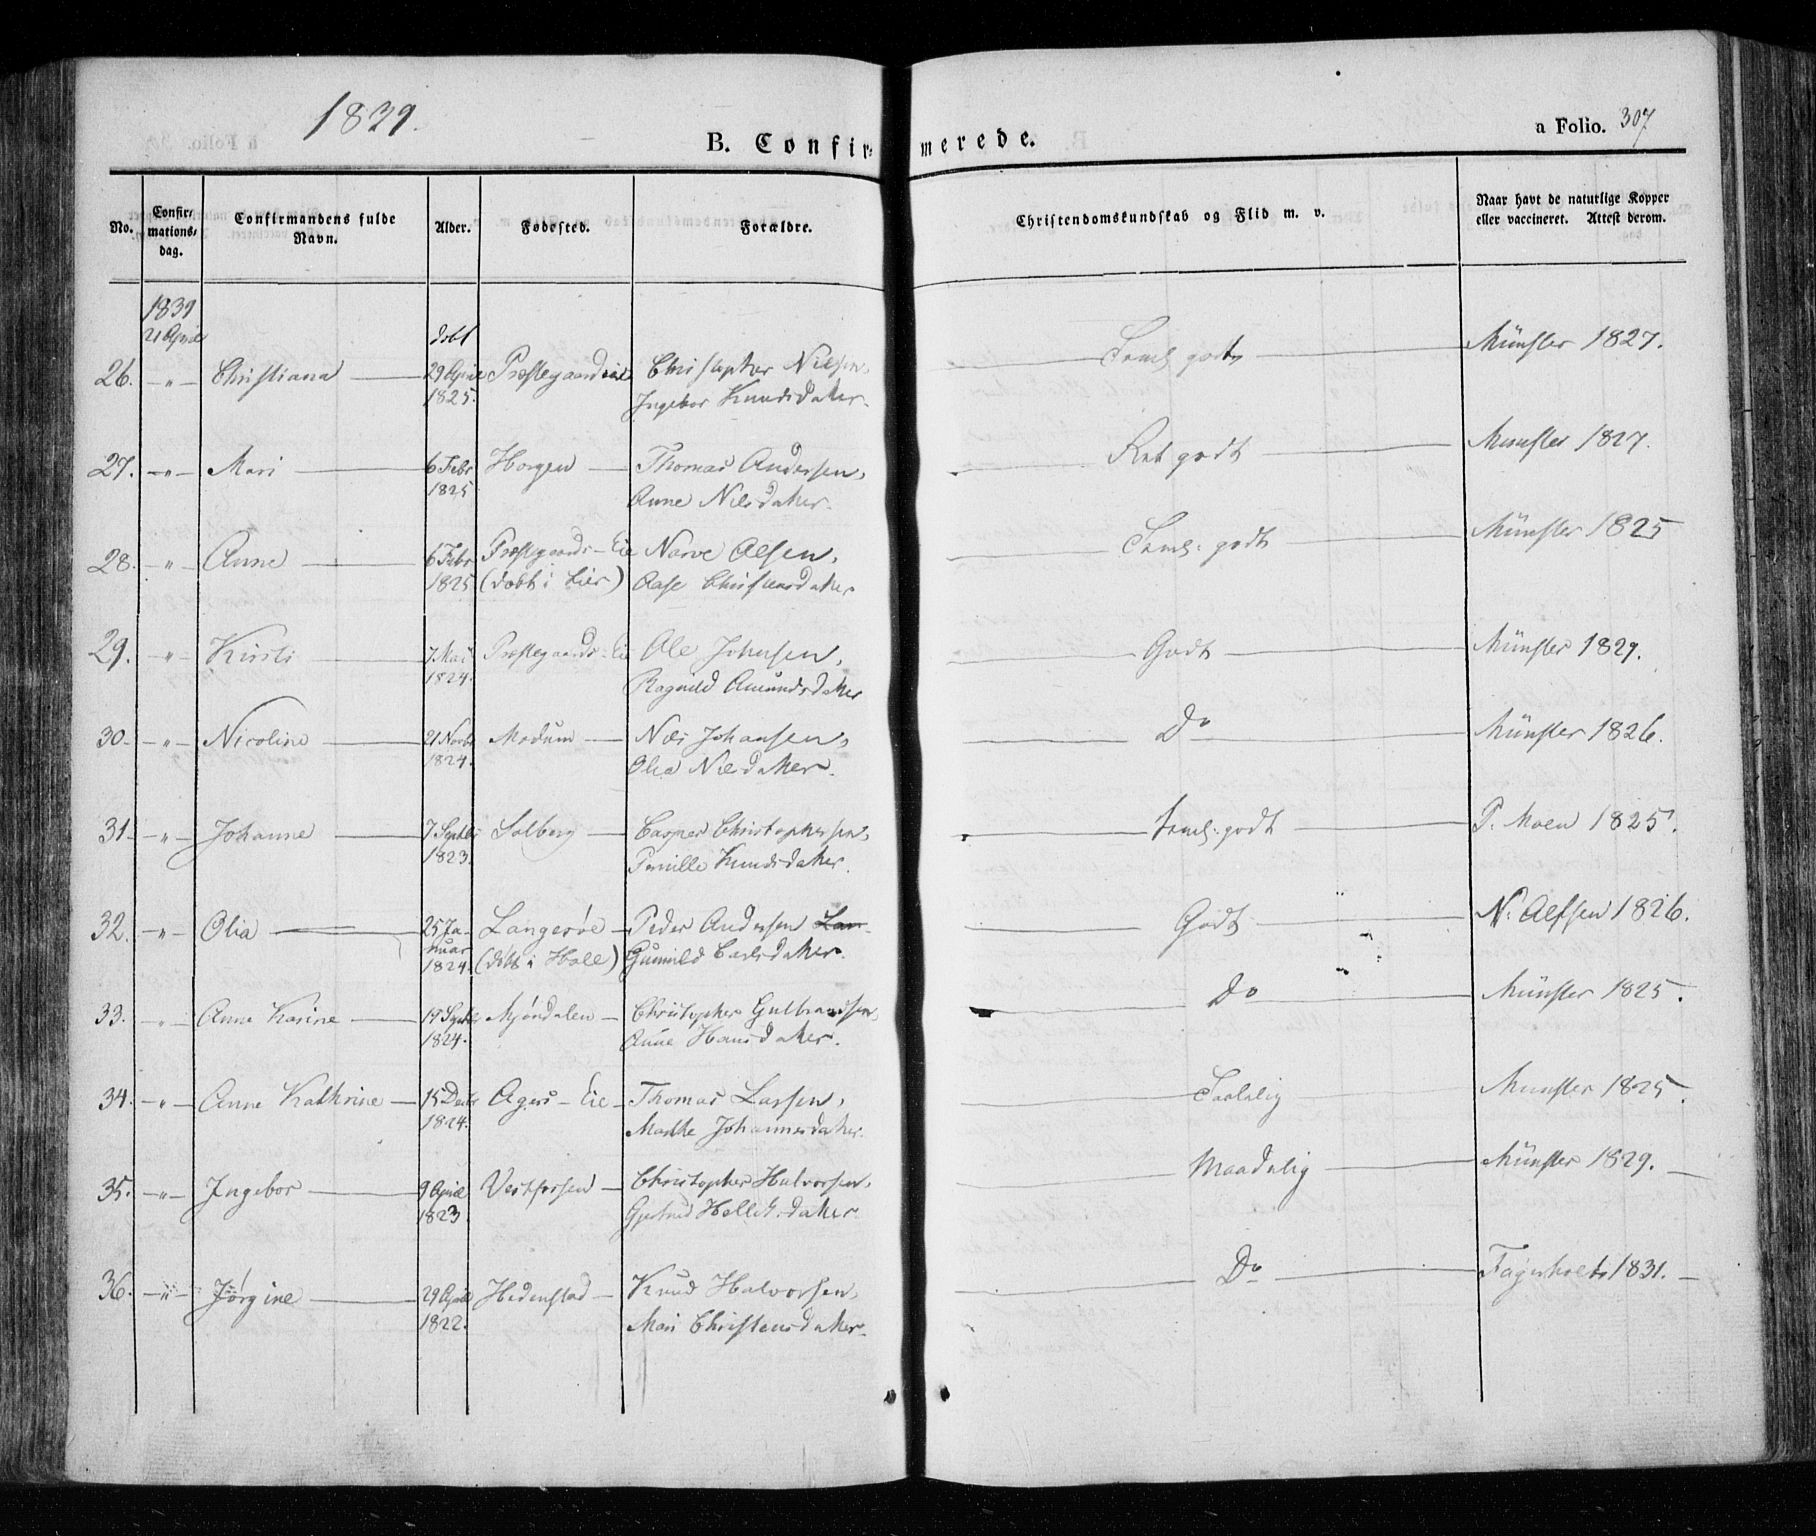 1839.
B. Confirmerede.
a Folio. 307
No.
Confir-
mations-
dag.
Confirmandens fulde
Navn.
Alder.
Fødested.
Forældre.
Christendomskundskab og Flid m. v.
Naar havt de naturlige Kopper
eller vaccineret. Attest derom.
1839
21 April
døbt
26. -"- Christiana 29 April Præstegaardseie Christopher Nielsen, Teml. godt Münster 1827.
1825. Ingebor Knudsdatter.
27. -"- Mari 6 Febr Horgen Thomas Andersen, Ret godt Munster 1827.
1825 Anne Nilsdatter.
28. -"- Anne 6 Febr Præstegaards-Eie Narve Olsen, Teml. godt Münster 1825
1825 (døbt i Eier) Aase Christensdatter
29. -"- Kirsti 7 Mai Præstegaards-Eie Ole Johnsen, Godt Münster 1829.
1824. Ragnild Amundsdatter
30. -"- Nicoline 21 Novbr Modum Nils Johansen, Do Münster 1826.
1824. Olia Nilsdatter.
31. -"- Johanne 7 Septbr Solberg Casper Christophersen, teml. godt P. Moen 1825.
1823. Pernille Knudsdatter.
32. -"- Olia 25 Ja- Langesøe Peder Andersen Lar- Godt N. Alfsen 1826.
nuar
1824. (døbt i Hole) Gunnild Carlsdatter.
33. -"- Anne Karine 19 Septbr Mjøndalen Christopher Gulbrandsen, Do Münster 1825.
1824. Anne Hansdatter.
34. -"- Anne Kathrine 15 Decbr Agers-Eie Thomas Larsen, Taalelig Munster 1825.
1824. Marthe Johannesdatter.
35. -"- Ingebor 9 April Vestfossen Christopher Halvorsen, Maadelig Münster 1829.
1823. Gjertrud Helliksdatter.
36. -"- Jørgine 29 April Hedenstad Knud Halvorsen, Do Fagerholt 1831.
1822. Mari Christensdatter.